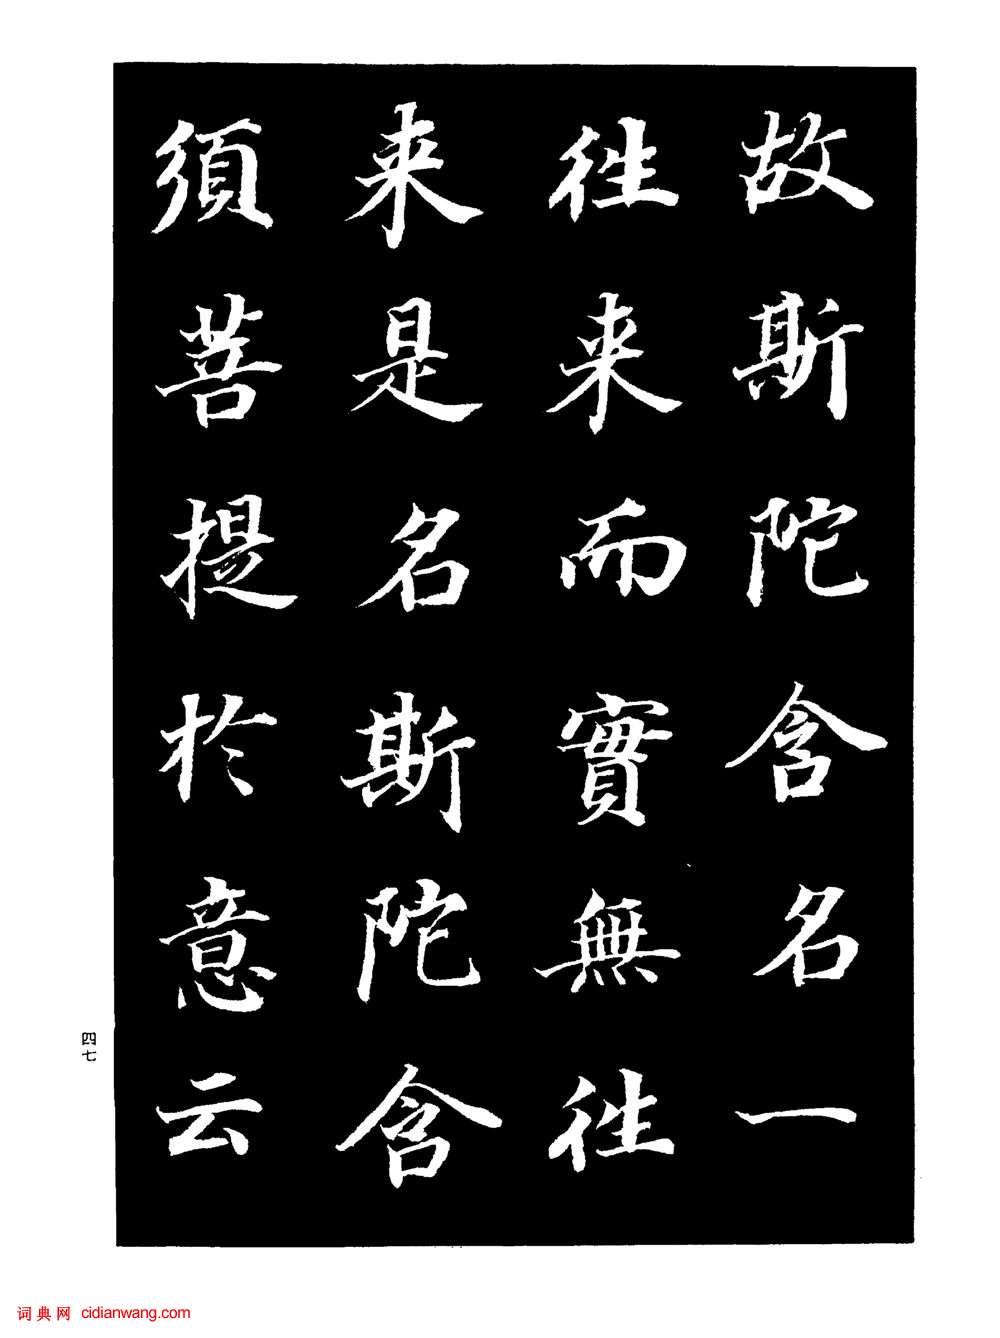 故斯陀含名一
徃来而實無徃
来是名斯陀含
須菩提於意云
四七
词典网 cidianwang.com